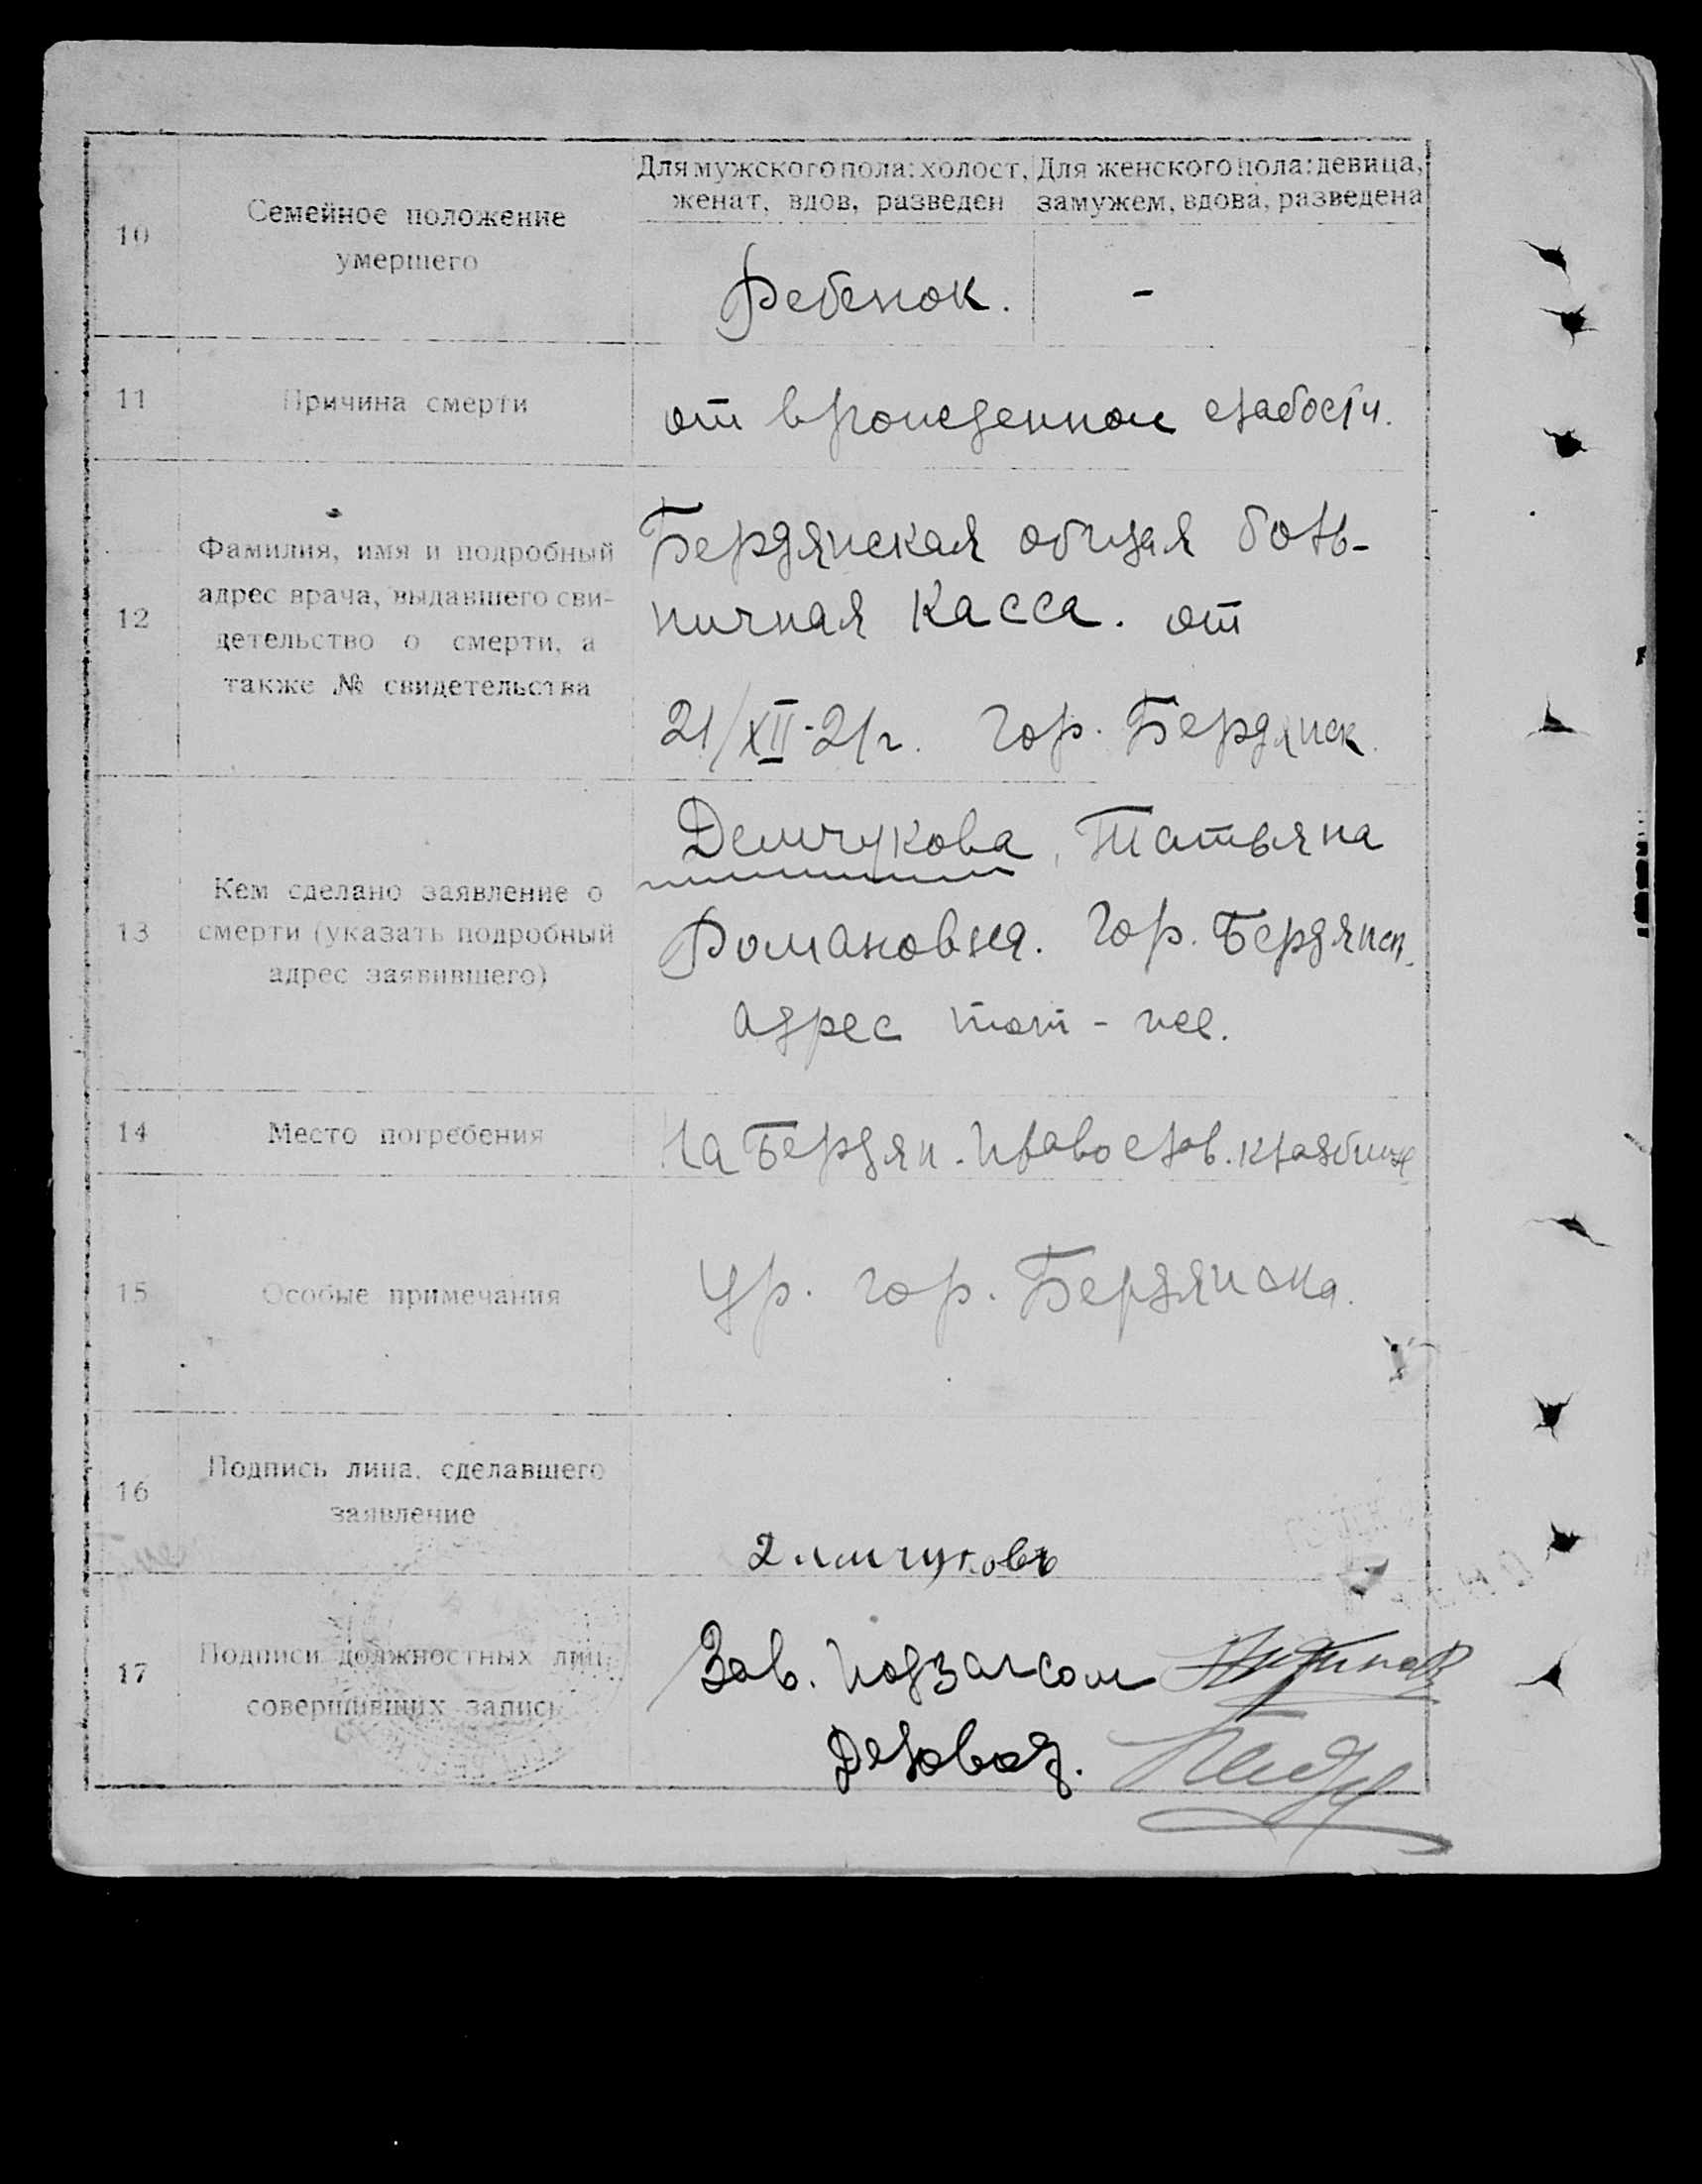 Для мужского пола: холост, женат, вдов, разведен
Для женского пола: девица, замужем, вдова, разведена
10
Семейное положение
умершего
Ребенок.
-
11
Причина смерти
от врожденной слабости.
12
Фамилия, имя и подробный
адрес врача, выдавшего сви-
детельство о смерти, а
также № свидетельства
Бердянская общая боль-
ничная касса. от
21/XII-21г. гор. Бердянск.
13
Кем сделано заявление о
смерти (указать подробный
адрес заявившего)
Демчукова, Татьяна
Романовна. Гор. Бердянск.
Адрес тот-же.
14
Место погребения
На Бердян. Православ. кладбище
15
Особые примечания
Ур. гор. Бердянска.
16
Подпись лица, сделавшего
заявление
17
Подписи должностных лиц,
совершивших запись
Зав. Подзагсом
Деловод.